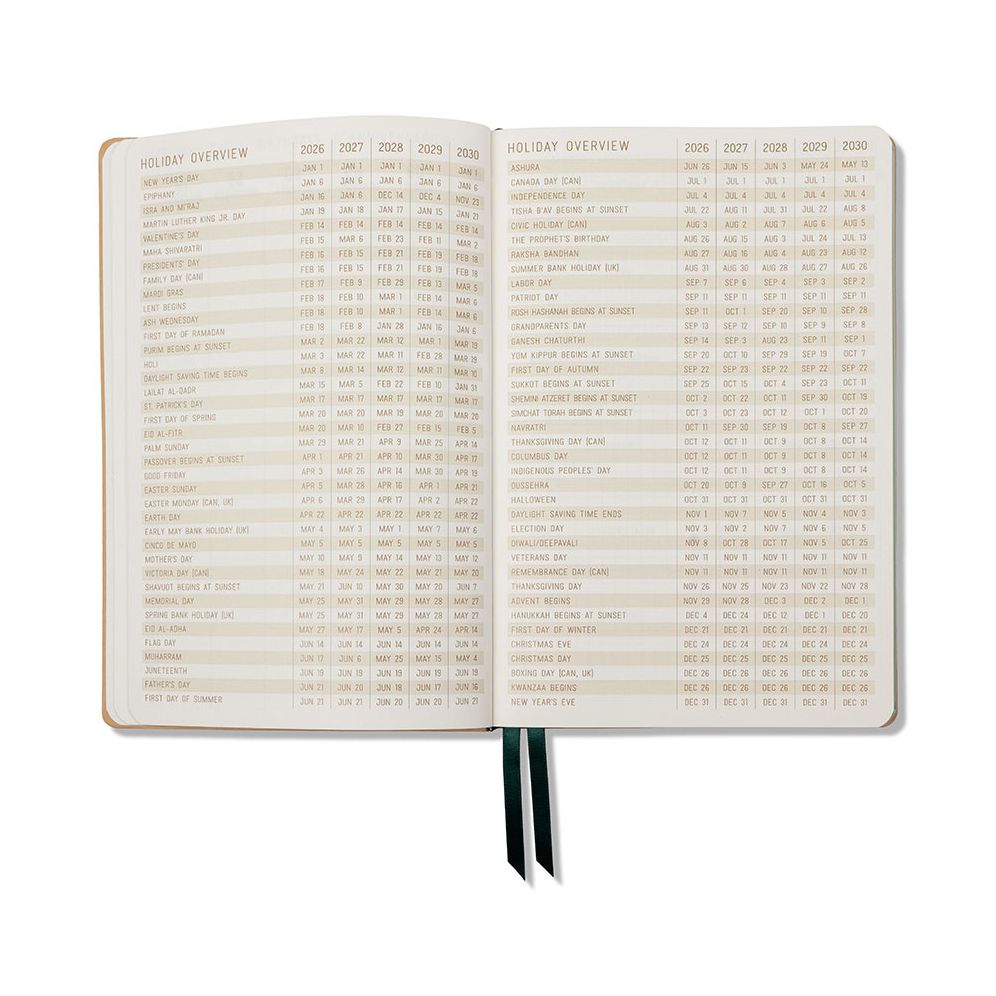 HOLIDAY OVERVIEW 2026 2027 2028 2029 2030
NEW YEAR'S DAY JAN 1 JAN 1 JAN 1 JAN 1 JAN 1
EPIPHANY JAN 6 JAN 6 JAN 6 JAN 6 JAN 6
ISRA AND MI'RAJ JAN 16 JAN 6 DEC 14 DEC 4 NOV 23
MARTIN LUTHER KING JR. DAY JAN 19 JAN 18 JAN 17 JAN 15 JAN 21
VALENTINE'S DAY FEB 14 FEB 14 FEB 14 FEB 14 FEB 14
MAHA SHIVARATRI FEB 15 MAR 6 FEB 23 FEB 11 MAR 2
PRESIDENTS' DAY FEB 16 FEB 15 FEB 21 FEB 19 FEB 18
FAMILY DAY (CAN) FEB 16 FEB 15 FEB 21 FEB 19 FEB 18
MARDI GRAS FEB 17 FEB 9 FEB 29 FEB 13 MAR 5
LENT BEGINS FEB 18 FEB 10 MAR 1 FEB 14 MAR 6
ASH WEDNESDAY FEB 18 FEB 10 MAR 1 FEB 14 MAR 6
FIRST DAY OF RAMADAN FEB 18 FEB 8 JAN 28 JAN 16 JAN 6
PURIM BEGINS AT SUNSET MAR 2 MAR 22 MAR 11 FEB 28
HOLI MAR 3 MAR 22 MAR 11 MAR 19
DAYLIGHT SAVING TIME BEGINS MAR 8 MAR 14 MAR 12 MAR 11 MAR 10
LAILAT AL-QADR MAR 15 MAR 5 FEB 22 FEB 10 JAN 31
ST. PATRICK'S DAY MAR 17 MAR 17 MAR 17 MAR 17 MAR 17
FIRST DAY OF SPRING MAR 20 MAR 20 MAR 19 MAR 20 MAR 20
EID AL-FITR MAR 20 MAR 10 FEB 27 FEB 15 FEB 5
PALM SUNDAY MAR 29 MAR 21 APR 9 MAR 25 APR 14
PASSOVER BEGINS AT SUNSET APR 1 APR 21 APR 10 MAR 30 APR 17
GOOD FRIDAY APR 3 MAR 26 APR 14 MAR 30 APR 19
EASTER SUNDAY APR 5 MAR 28 APR 16 APR 1 APR 21
EASTER MONDAY (CAN, UK) APR 6 MAR 29 APR 17 APR 2 APR 22
EARTH DAY APR 22 APR 22 APR 22 APR 22 APR 22
EARLY MAY BANK HOLIDAY (UK) MAY 4 MAY 3 MAY 1 MAY 7 MAY 6
CINCO DE MAYO MAY 5 MAY 5 MAY 5 MAY 5 MAY 5
MOTHER'S DAY MAY 10 MAY 9 MAY 14 MAY 13 MAY 12
VICTORIA DAY (CAN) MAY 18 MAY 24 MAY 22 MAY 21 MAY 20
SHAVUOT BEGINS AT SUNSET MAY 21 JUN 10 MAY 30 MAY 20 JUN 7
MEMORIAL DAY MAY 25 MAY 31 MAY 29 MAY 28 MAY 27
SPRING BANK HOLIDAY (UK) MAY 25 MAY 31 MAY 29 MAY 28 MAY 27
EID AL-ADHA MAY 27 MAY 17 MAY 5 APR 24 APR 14
FLAG DAY JUN 14 JUN 14 JUN 14 JUN 14 JUN 14
MUHARRAM JUN 17 JUN 6 MAY 25 MAY 15 MAY 4
JUNETEENTH JUN 19 JUN 19 JUN 19 JUN 19 JUN 19
FATHER'S DAY JUN 21 JUN 20 JUN 18 JUN 17 JUN 16
FIRST DAY OF SUMMER JUN 21 JUN 21 JUN 20 JUN 20 JUN 21
HOLIDAY OVERVIEW 2026 2027 2028 2029 2030
ASHURA JUN 26 JUN 15 JUN 3 MAY 24 MAY 13
CANADA DAY (CAN) JUL 1 JUL 1 JUL 1 JUL 1 JUL 1
INDEPENDENCE DAY JUL 4 JUL 4 JUL 4 JUL 4 JUL 4
TISHA B'AV BEGINS AT SUNSET JUL 22 AUG 11 JUL 31 JUL 22 AUG 8
CIVIC HOLIDAY (CAN) AUG 3 AUG 2 AUG 7 AUG 6 AUG 5
THE PROPHET'S BIRTHDAY AUG 26 AUG 15 AUG 3 JUL 24 JUL 13
RAKSHA BANDHAN AUG 27 AUG 16 AUG 4 AUG 23 AUG 12
SUMMER BANK HOLIDAY (UK) AUG 31 AUG 30 AUG 28 AUG 27 AUG 26
LABOR DAY SEP 7 SEP 6 SEP 4 SEP 3 SEP 2
PATRIOT DAY SEP 11 SEP 11 SEP 11 SEP 11 SEP 11
ROSH HASHANAH BEGINS AT SUNSET SEP 11 OCT 1 SEP 20 SEP 10 SEP 28
GRANDPARENTS DAY SEP 13 SEP 12 SEP 10 SEP 9 SEP 8
GANESH CHATURTHI SEP 14 SEP 3 AUG 23 SEP 11 SEP 1
YOM KIPPUR BEGINS AT SUNSET SEP 20 OCT 10 SEP 29 SEP 19 OCT 7
FIRST DAY OF AUTUMN SEP 22 SEP 23 SEP 22 SEP 22 SEP 22
SUKKOT BEGINS AT SUNSET SEP 25 OCT 15 OCT 4 SEP 23 OCT 11
SHEMINI ATZERET BEGINS AT SUNSET OCT 2 OCT 22 OCT 11 SEP 30 OCT 19
SIMCHAT TORAH BEGINS AT SUNSET OCT 3 OCT 23 OCT 12 OCT 1 OCT 20
NAVRATRI OCT 11 SEP 30 SEP 18 OCT 7 SEP 27
THANKSGIVING DAY (CAN) OCT 12 OCT 11 OCT 9 OCT 8 OCT 14
COLUMBUS DAY OCT 12 OCT 11 OCT 9 OCT 8 OCT 14
INDIGENOUS PEOPLES' DAY OCT 12 OCT 11 OCT 9 OCT 8 OCT 14
DUSSEHRA OCT 20 OCT 9 SEP 27 OCT 16 OCT 5
HALLOWEEN OCT 31 OCT 31 OCT 31 OCT 31 OCT 31
DAYLIGHT SAVING TIME ENDS NOV 1 NOV 7 NOV 5 NOV 4 NOV 3
ELECTION DAY NOV 3 NOV 2 NOV 7 NOV 6 NOV 5
DIWALI/DEEPAVALI NOV 8 OCT 28 OCT 17 NOV 5 OCT 25
VETERANS DAY NOV 11 NOV 11 NOV 11 NOV 11 NOV 11
REMEMBRANCE DAY (CAN) NOV 11 NOV 11 NOV 11 NOV 11 NOV 11
THANKSGIVING DAY NOV 26 NOV 25 NOV 23 NOV 22 NOV 28
ADVENT BEGINS NOV 29 NOV 28 DEC 3 DEC 2 DEC 1
HANUKKAH BEGINS AT SUNSET DEC 4 DEC 24 DEC 12 DEC 1 DEC 20
FIRST DAY OF WINTER DEC 21 DEC 21 DEC 21 DEC 21 DEC 21
CHRISTMAS EVE DEC 24 DEC 24 DEC 24 DEC 24 DEC 24
CHRISTMAS DAY DEC 25 DEC 25 DEC 25 DEC 25 DEC 25
BOXING DAY (CAN, UK) DEC 26 DEC 26 DEC 26 DEC 26 DEC 26
KWANZAA BEGINS DEC 26 DEC 26 DEC 26 DEC 26 DEC 26
NEW YEAR'S EVE DEC 31 DEC 31 DEC 31 DEC 31 DEC 31